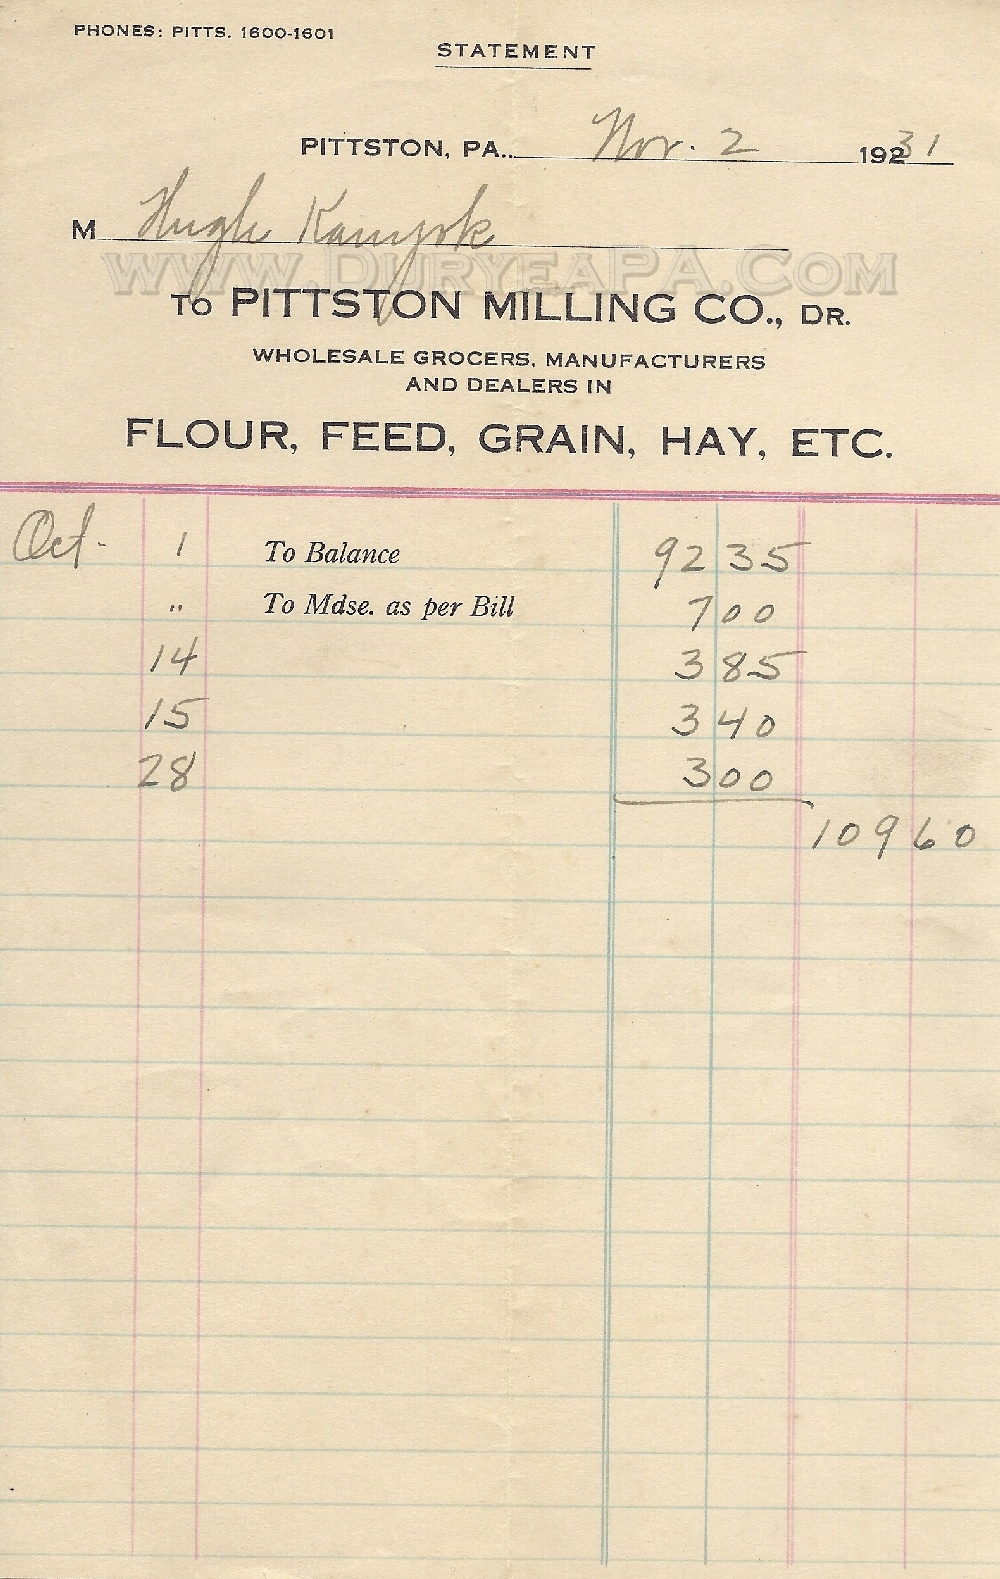 PHONES: PITTS. 1600-1601
STATEMENT
PITTSTON, PA. Nov. 2 19231
M Hugh Kamyok
www.DuryeaPA.Com
TO PITTSTON MILLING CO., DR.
WHOLESALE GROCERS, MANUFACTURERS
AND DEALERS IN
FLOUR, FEED, GRAIN, HAY, ETC.
Oct. 1 To Balance 92 35
" To Mdse. as per Bill 7 00
14 3 85
15 3 40
28 3 00
109 60